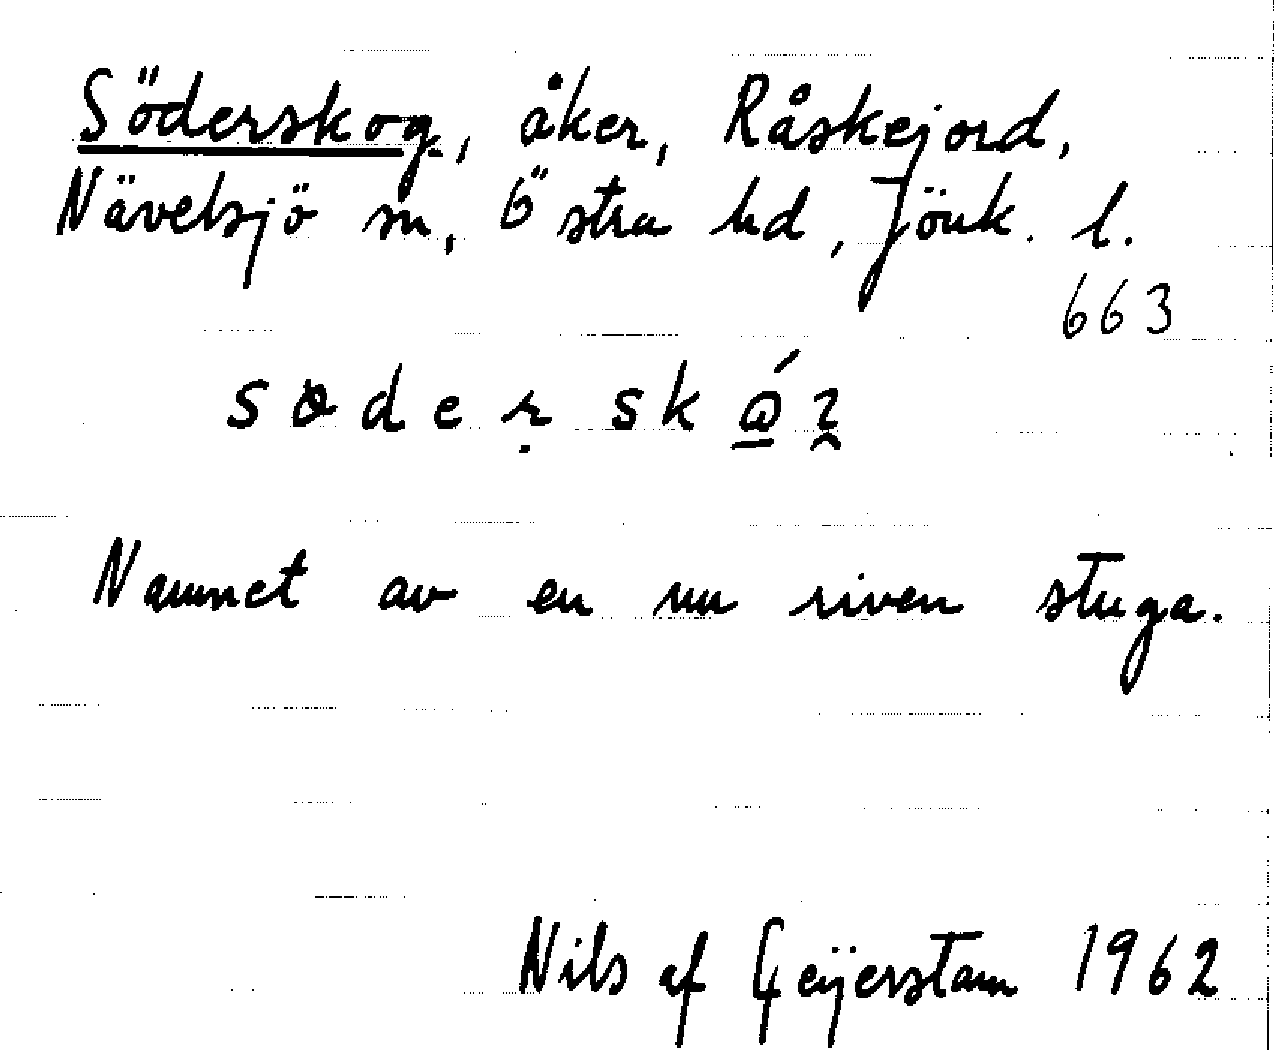 Söderskog, åker, Råskejord,
Nävelsjö sn, Östra hd, Jönk. l.
663
Namnet av en nu riven stuga.
Nils af Geijerstam 1962